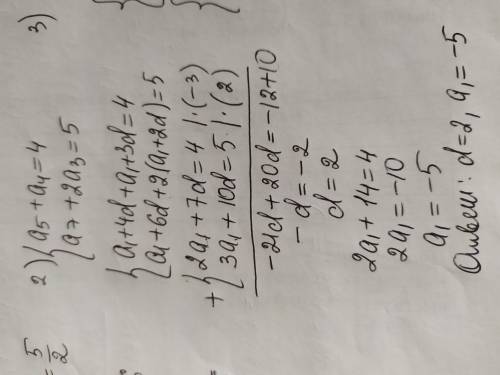 = 5/2
2) { a₅ + a₄ = 4
a₇ + 2a₃ = 5
{ a₁ + 4d + a₁ + 3d = 4
a₁ + 6d + 2(a₁ + 2d) = 5
+ { 2a₁ + 7d = 4 | · (-3)
3a₁ + 10d = 5 | · (2)
-21d + 20d = -12 + 10
-d = -2
d = 2
2a₁ + 14 = 4
2a₁ = -10
a₁ = -5
Ответ: d = 2, a₁ = -5
3)